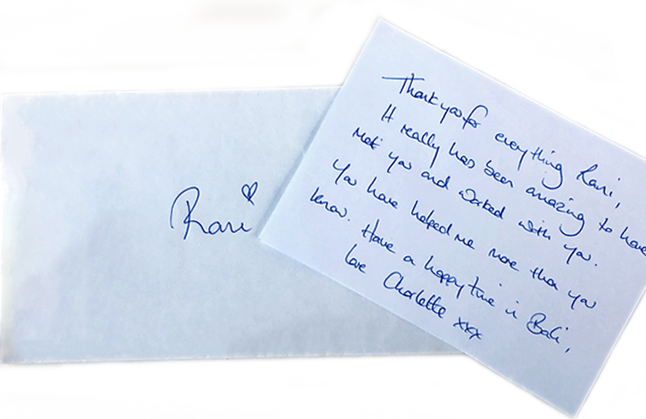 Rani
Thank you for everything Rani,
It really has been amazing to have
met you and worked with you.
You have helped me more than you
know. Have a happy time in Bali,
love Charlotte xxx